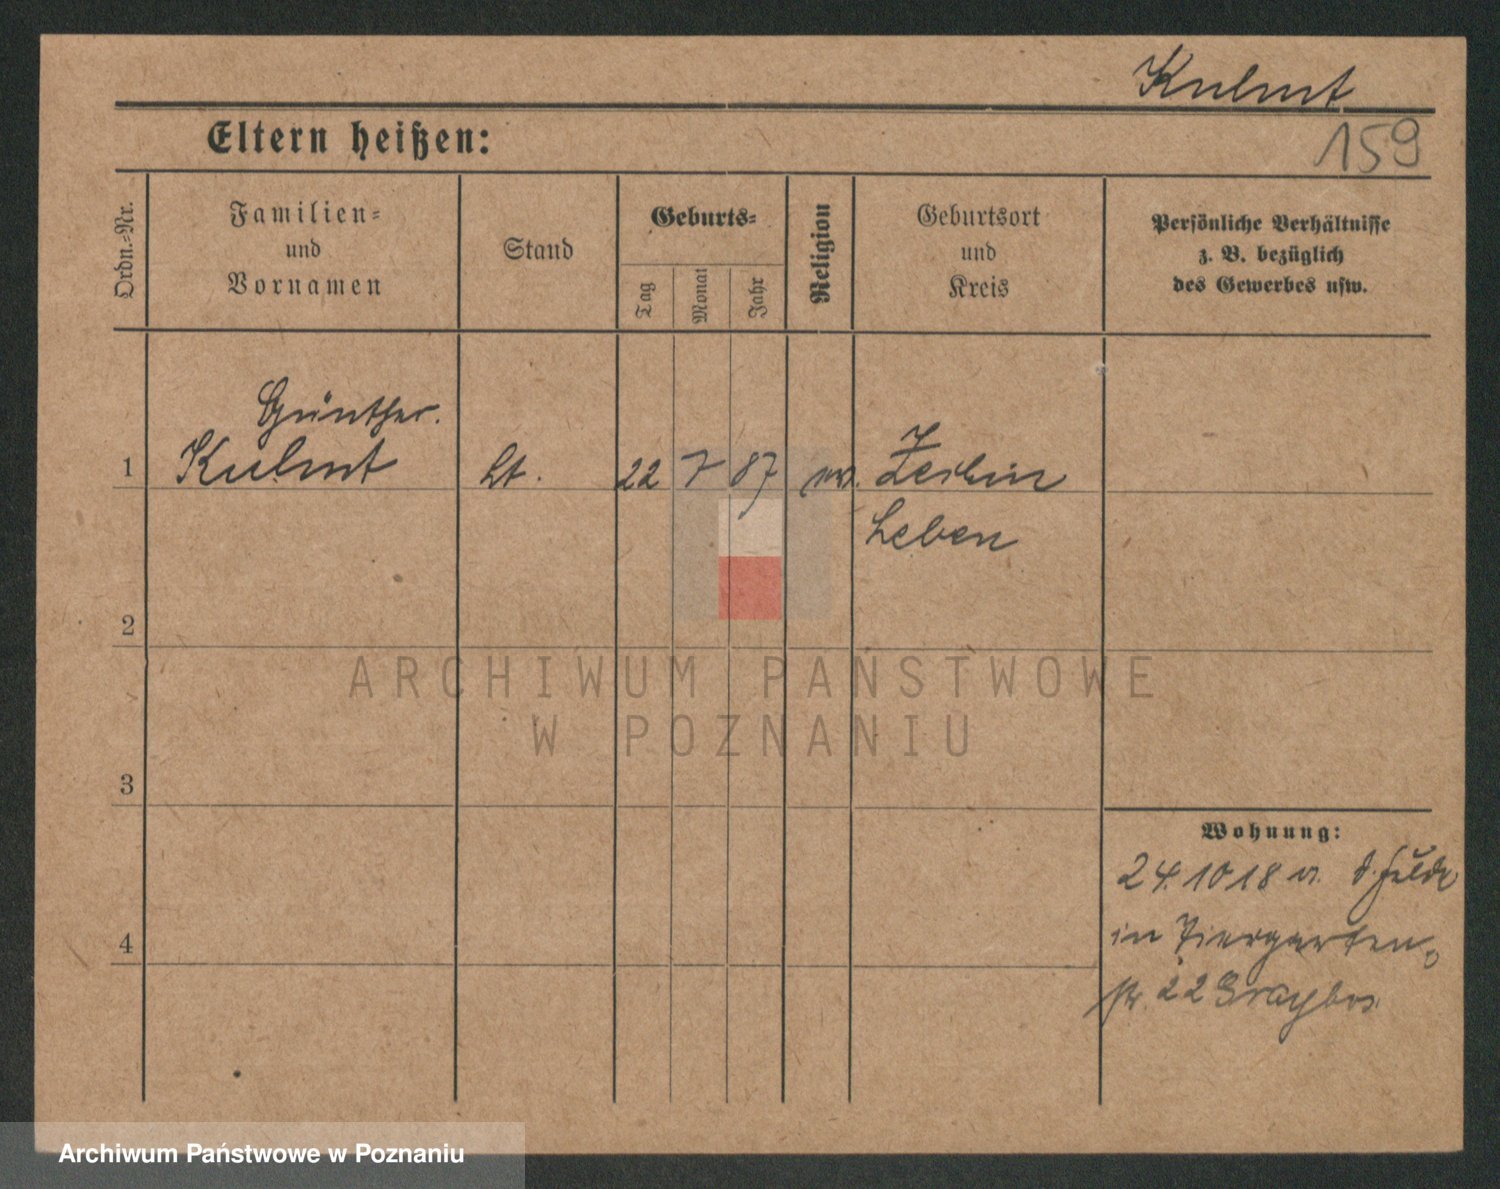 Kulmt
Eltern heißen:
159
Ordn.-Nr.
Familien-
und
Vornamen
Stand
Geburts-
Tag
Monat
Jahr
Religion
Geburtsort
und
Kreis
Persönliche Verhältnisse
z. B. bezüglich
des Gewerbes usw.
Günther.
1 Kulmt Lt. 22 7 87
Leben
2
ARCHIWUM PAŃSTWOWE
W POZNANIU
3
Wohnung:
24.10 18 v. d. Felde
in Tiergarten-
4
str. 22
Archiwum Państwowe w Poznaniu